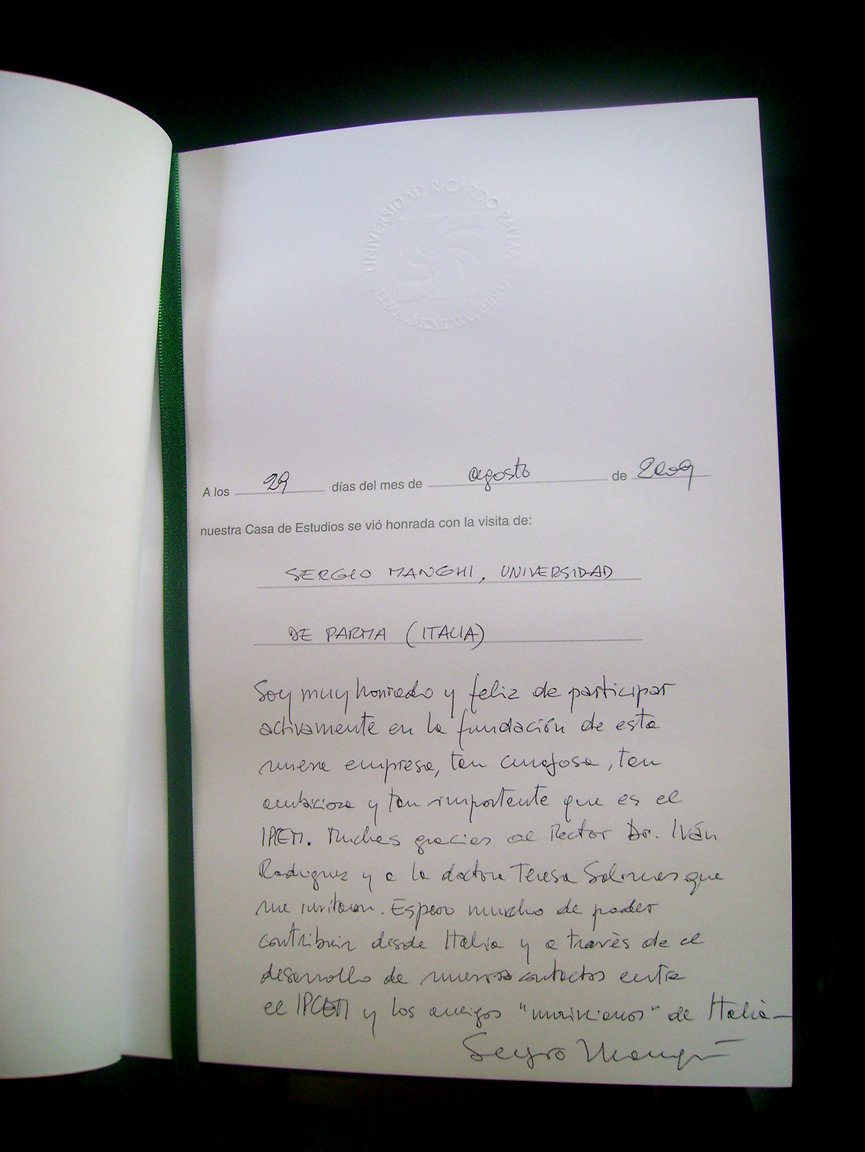 UNIVERSIDAD RICARDO PALMA
A los 29 días del mes de agosto de 2009
nuestra Casa de Estudios se vió honrada con la visita de:
SERGIO MANGHI, UNIVERSIDAD
DE PARMA (ITALIA)
Soy muy honrado y feliz de participar
activamente en la fundación de esta
nueva empresa, tan corajosa, tan
ambiciosa y tan importante que es el
IPCEM. Muchas gracias al Rector Dr. Iván
Rodríguez y a la doctora Teresa Salinas que
me invitaron. Espero mucho de poder
contribuir desde Italia y a través de el
desarrollo de nuevos contactos entre
el IPCEM y los amigos "morinianos" de Italia
Sergio Manghi